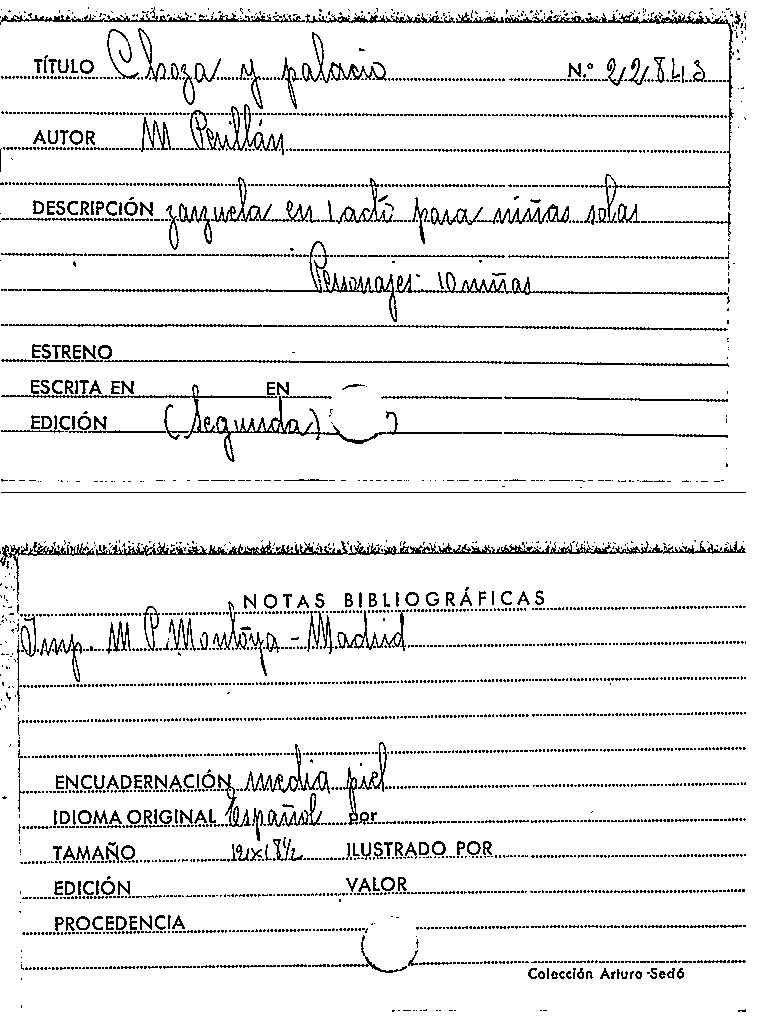 TÍTULO Choza y palacio N.º 22843
AUTOR M Perillán
DESCRIPCIÓN zarzuela en 1 acto para niñas solas
Personajes: 10 niñas
ESTRENO
ESCRITA EN EN
EDICIÓN (Segunda)
NOTAS BIBLIOGRÁFICAS
Imp. M P Montoya - Madrid
ENCUADERNACIÓN media piel
IDIOMA ORIGINAL Español por
TAMAÑO 12x18½ ILUSTRADO POR
EDICIÓN VALOR
PROCEDENCIA
Colección Arturo Sedó